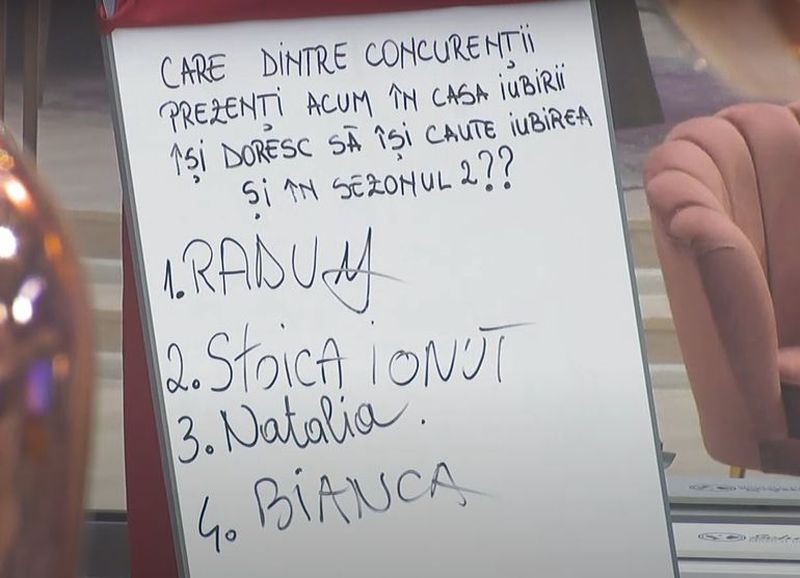 CARE DINTRE CONCURENȚII
PREZENȚI ACUM ÎN CASA IUBIRII
ÎȘI DORESC SĂ ÎȘI CAUTE IUBIREA
ȘI ÎN SEZONUL 2??
1. RADU
2. Stoica IONUT
3. Natalia.
4. BIANCA